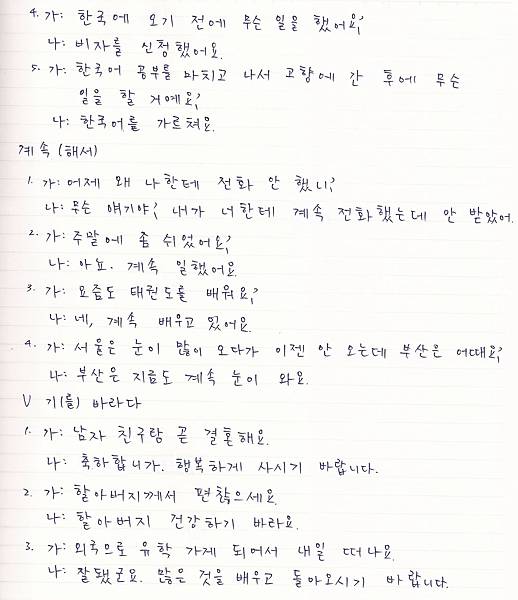 4. 가: 한국에 오기 전에 무슨 일을 했어요?
나: 비자를 신청했어요.
5. 가: 한국어 공부를 마치고 나서 고향에 간 후에 무슨
일을 할 거예요?
나: 한국어를 가르쳐요.
계속 (해서)
1. 가: 어제 왜 나한테 전화 안 했니?
나: 무슨 얘기야? 내가 너한테 계속 전화했는데 안 받았어.
2. 가: 주말에 좀 쉬었어요?
나: 아뇨. 계속 일했어요.
3. 가: 요즘도 태권도를 배워요?
나: 네, 계속 배우고 있어요.
4. 가: 서울은 눈이 많이 오다가 이젠 안 오는데 부산은 어때요?
나: 부산은 지금도 계속 눈이 와요.
V 기(를) 바라다
1. 가: 남자 친구랑 곧 결혼해요.
나: 축하합니다. 행복하게 사시기 바랍니다.
2. 가: 할아버지께서 편찮으세요.
나: 할아버지 건강하기 바라요.
3. 가: 외국으로 유학 가게 되어서 내일 떠나요.
나: 잘됐군요. 많은 것을 배우고 돌아오시기 바랍니다.